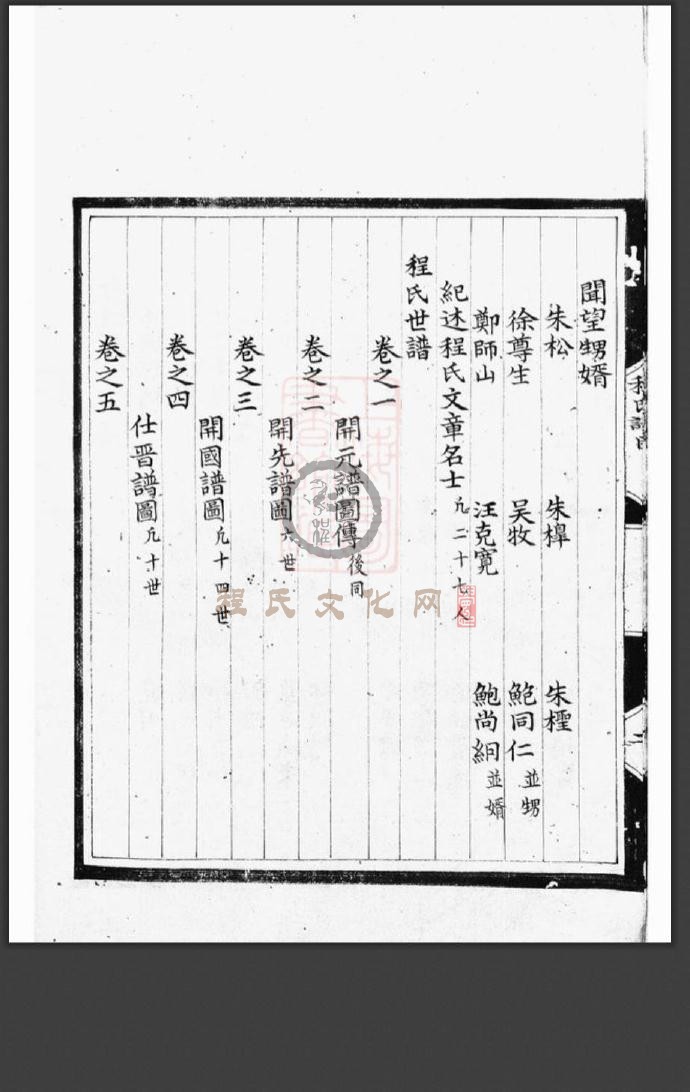 聞望甥婿
朱松 朱槹 朱檉
徐尊生 吴牧 鮑同仁並甥
鄭師山 汪克寬 鮑尚絅並婿
紀述程氏文章名士凢二十七人
程氏世譜
卷之一
開元譜圖傳後同
卷之二
開先譜圖六世
卷之三
開國譜圖凢十四世
卷之四
仕晋譜圖凢十世
卷之五
程氏文化网